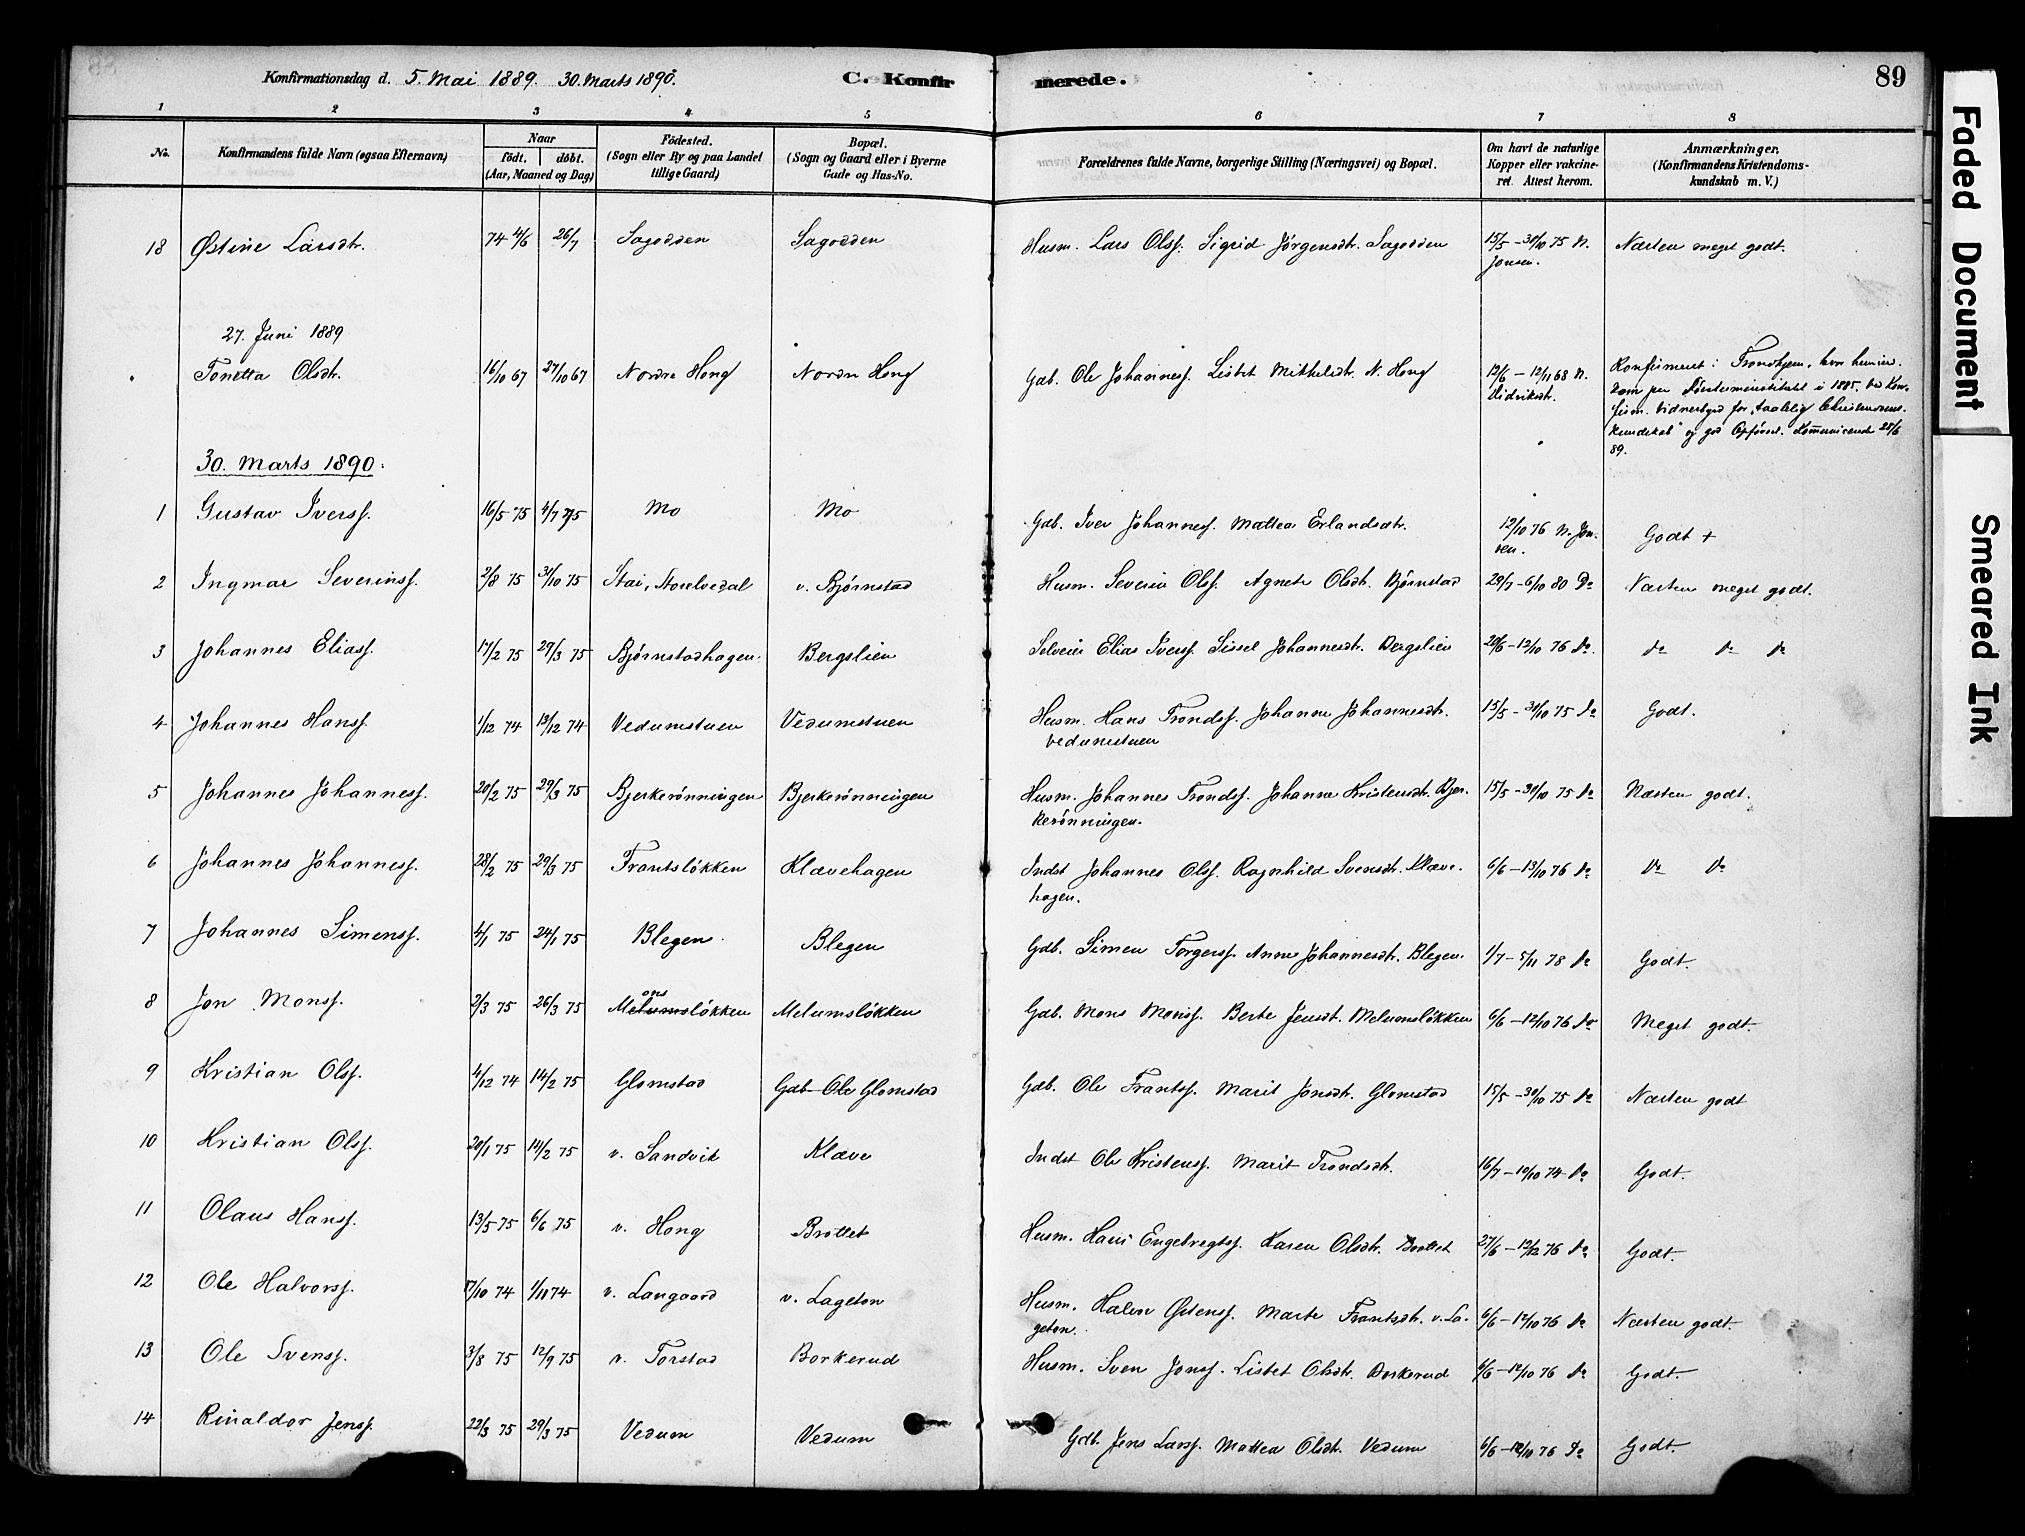 Konfirmationsdag d. 5. Mai 1889. 30. Marts 1890.
C. Konfirmerede.
89
1 2 3 4 5 6 7 8
No.
Konfirmandens fulde Navn (ogsaa Efternavn)
Naar
födt. döbt.
(Aar, Maaned og Dag)
Födested.
(Sogn eller By og paa Landet
tillige Gaard)
Bopæl.
(Sogn og Gaard eller i Byerne
Gade og Hus-No.
Forældrenes fulde Navne, borgerlige Stilling (Næringsvei) og Bopæl.
Om havt de naturlige
Kopper eller vakcine-
ret. Attest herom.
Anmærkninger.
(Konfirmandens Kristendoms-
kundskab m. V.)
18 Østine Larsdtr. 74 4/6 26/7 Sagodden Sagodden Husm. Lars Olsf. Sigrid Jørgensdtr. Sagodden 15/5 - 30/10 75 N. Næsten meget godt.
Jonsen.
27. Juni 1889
Tonetta Olsdtr. 16/10 67 27/10 67 Nordre Hong Nordre Hong Gdb. Ole Johannesf. Lisbet Mikkelsdtr. N. Hong 12/6 - 12/11 68 N.
Didriksdtr.
Konfirmeret i Trondhjem, hvor hun
kom paa Døvstumminstitutet i 1885.
Vidnesbyrd for "taalelig Christendoms-
kundskab" og god Opførsel. Kommunicerede 27/6
89.
30. Marts 1890.
1 Gustav Iversf. 16/5 75 4/7 75 Mo Mo Gdb. Iver Johannesf. Mattea Erlandsdtr. 12/10 76 N. Jon- Godt +
sen.
2 Ingmar Severinsf. 2/8 75 31/10 75 Stai, Storelvedal v. Bjørnstad Husm. Severin Olsf. Agnete Olsdtr. Bjørnstad 29/7 - 6/10 80 Do Næsten meget godt.
3 Johannes Eliasf. 17/2 75 29/3 75 Bjørnstadhagen. Bergslien Selveier Elias Iversf. Sissel Johannesdtr. Bergslien 20/6 - 12/10 76 Do. Do Do Do
4 Johannes Hansf. 1/12 74 13/12 74 Vedumstuen Vedumstuen Husm. Hans Trondsf. Johanne Johannesdtr. 15/5 - 30/10 75 Do Godt.
Vedumstuen
5 Johannes Johannesf. 20/2 75 29/3 75 Bjerkerønningen Bjerkerønningen Husm. Johannes Trondsf. Johanne Kristensdtr. Bjer- 15/5 - 30/10 75 Do Næsten godt.
kerønningen.
6 Johannes Johannesf. 28/2 75 29/3 75 Frantsløkken Klævehagen Indst Johannes Olsf. Ragnhild Svensdtr. Klæve- 6/6 - 13/10 76 Do Do Do
hagen.
7 Johannes Simensf. 4/1 75 24/1 75 Blegen Blegen Gdb. Simen Torgersf. Anne Johannesdtr. Blegen. 1/7 - 5/11 78 Do Godt.
8 Jon Monsf. 2/3 75 26/3 75 Melumsløkken Melumsløkken Gdb. Mons Monsf. Berte Jensdtr. Melumsløkken 6/6 - 12/10 76 Do Meget godt.
ons
9 Kristian Olsf. 4/12 74 14/2 75 Glomstad Gdb Ole Glomstad Gdb. Ole Frantsf. Marit Jonsdtr. Glomstad 15/5 - 30/10 75 Do Næsten godt
10 Kristian Olsf. 20/1 75 14/2 75 v. Sandvik Klæve Indst Ole Kristensf. Marit Trondsdtr. 16/7 - 10/10 74 Do Godt.
11 Olaus Hansf. 13/5 75 6/6 75 v. Hong Brottet Husm. Hans Engebregtsf. Karen Olsdtr. Brottet 27/6 - 12/12 76 Do Godt.
12 Ole Halvorsf. 17/10 74 1/11 74 v. Langaard v. Lageton Husm. Halvor Østensf. Marte Frantsdtr. v. La- 6/6 - 12/10 76 Do Næsten godt.
geton.
13 Ole Svensf. 3/8 75 12/9 75 v. Torstad Borkerud Husm. Sven Jonsf. Lisbet Olsdtr. Borkerud 6/6 - 12/10 76 Do Godt.
14 Rinaldor Jensf. 22/3 75 29/3 75 Vedum Vedum Gdb. Jens Larsf. Mattea Olsdtr. Vedum 6/6 - 12/10 76 Do Godt.
Faded Document
Smeared Ink